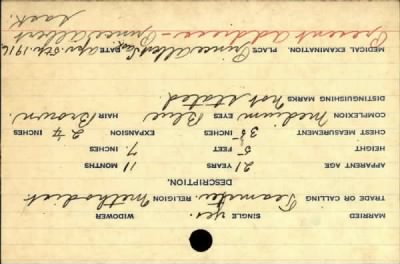 MARRIED SINGLE yes. WIDOWER
TRADE OR CALLING Teamster RELIGION Methodist
DESCRIPTION.
APPARENT AGE 21 YEARS 11 MONTHS
HEIGHT 5 FEET 7 INCHES
CHEST MEASUREMENT 35 INCHES EXPANSION 2¼ INCHES
COMPLEXION Medium EYES Blue HAIR Brown.
DISTINGUISHING MARKS not stated.
MEDICAL EXAMINATION. PLACE Prince Albert Sask. DATE Apr. 5th, 1916
Present address - Prince Albert
Sask.